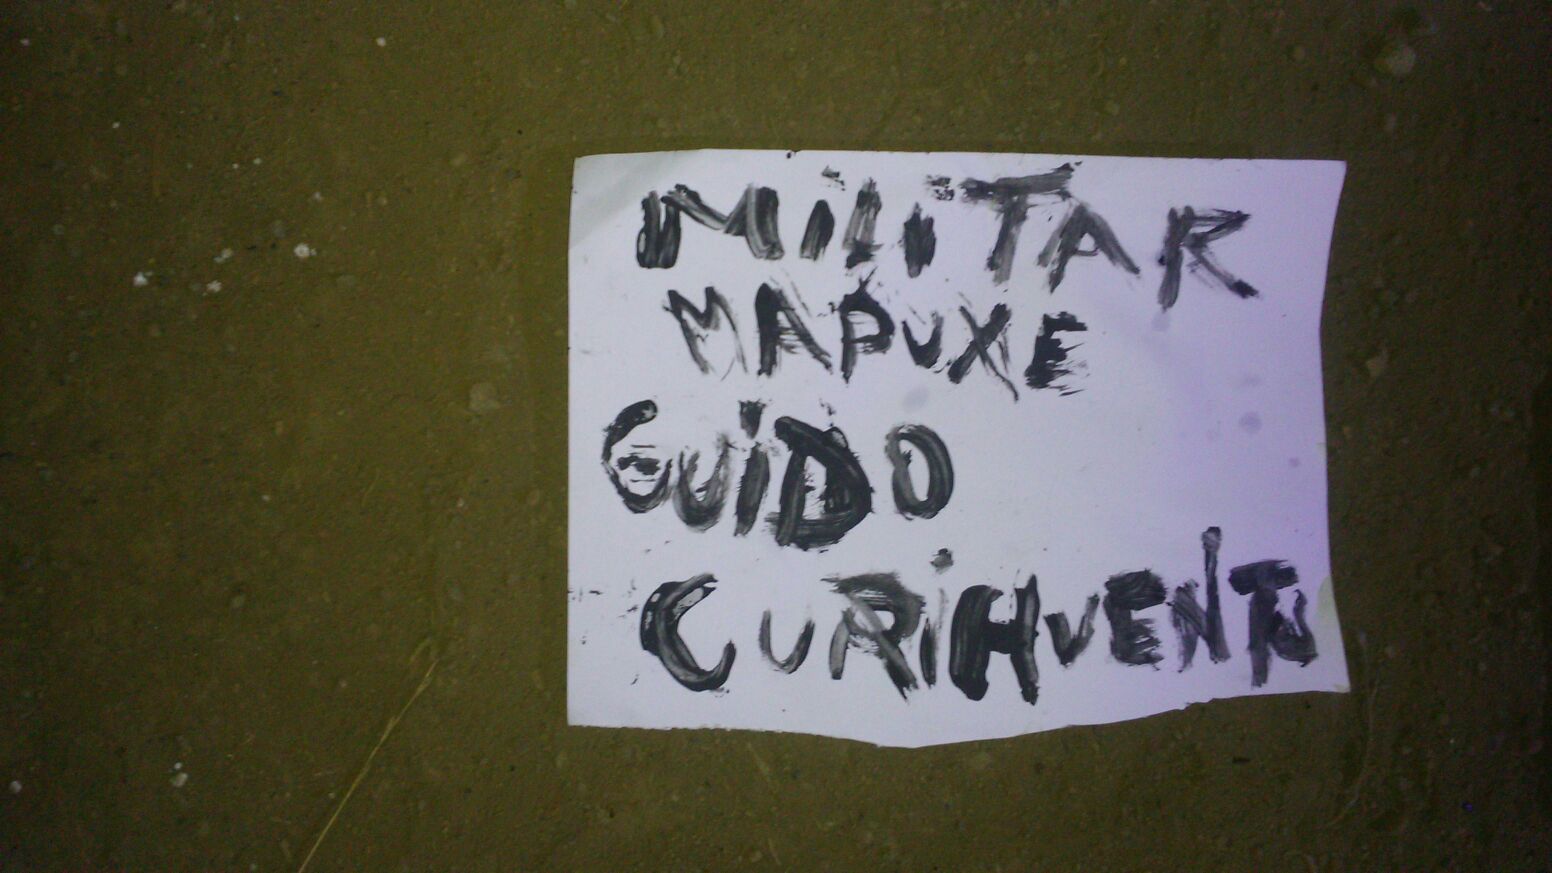 MiLiTAR
MAPUXE
GUiDO
CURiHUENTU